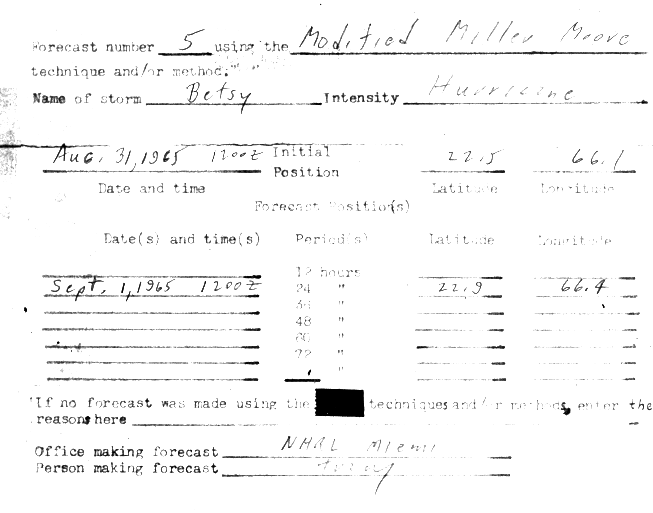 Forecast number 5 using the Modified Miller Moore
technique and/or method." "
Name of storm Betsy Intensity Hurricane
Aug. 31, 1965 1200Z Initial Position 22.5 66.1
Date and time Latitude Longitude
Forecast Position(s)
Date(s) and time(s) Period(s) Latitude Longitude
12 hours
Sept. 1, 1965 1200Z 24 " 22.9 66.4
36 "
48 "
60 "
72 "
"
"If no forecast was made using the techniques and/or methods, enter the
reasons here
Office making forecast NHRL Miami
Person making forecast